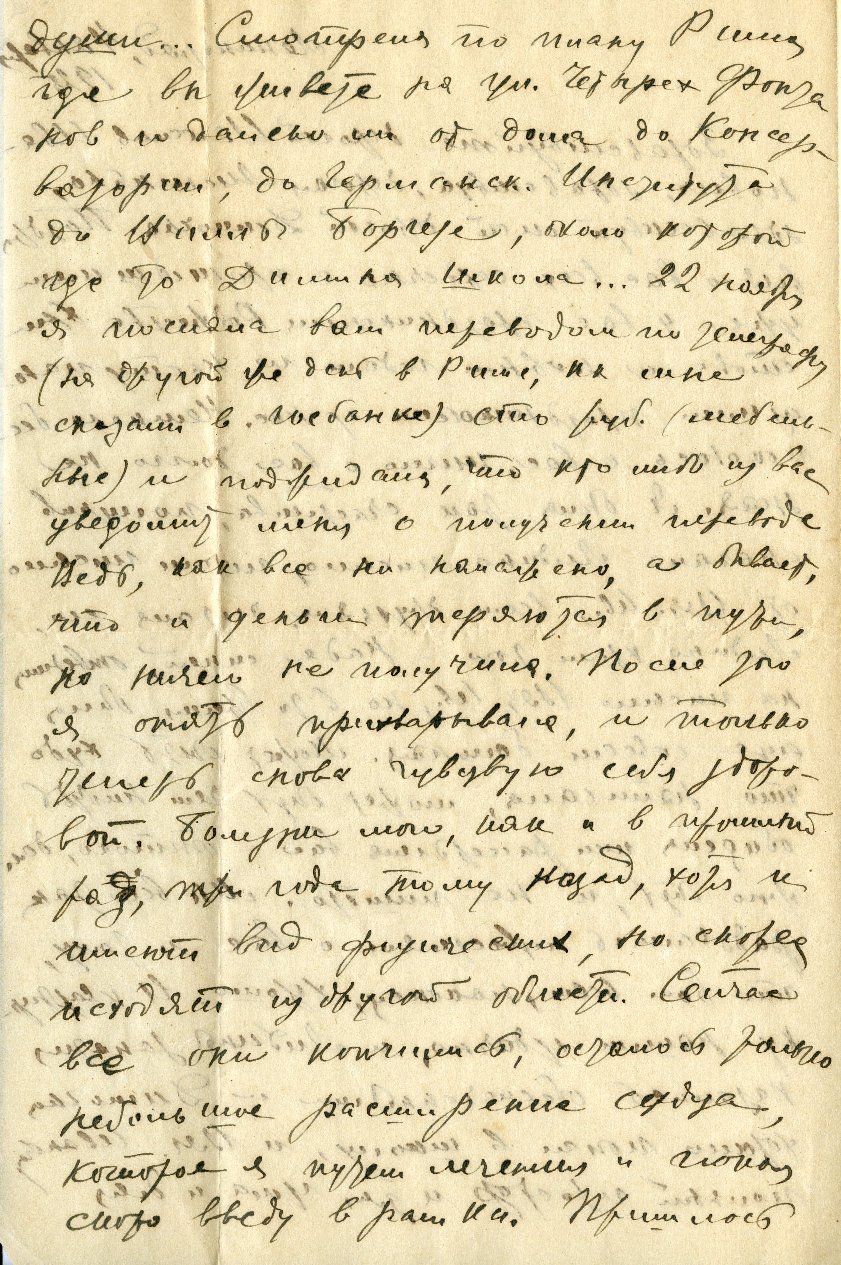 души... Смотрела по плану Рима
где вы живете на ул. Четырех Фонта
нов и далеко ли от дома до Консер-
ватории, до Германск. Института
до Виллы Боргезе, около которой
где то Димина школа... 22 ноября
я послала вам переводом по телеграфу
(на другой же день в Риме, как мне
сказали в Госбанке) сто руб. (мебель-
ные) и поджидала, что кто либо из вас
уведомит меня о получении перевода
Ведь, как все ни налажено, а бывает,
что и деньги теряются в пути,
но ничего не получила. После того
я опять прихварывала, и только
теперь снова чувствую себя здоро-
вой. Болезни мои, как и в прошлый
раз, три года тому назад, хотя и
имеют вид физических, но скорее
исходят из другой области. Сейчас
все они кончились, осталось только
небольшое расширение сердца,
которое я путем лечения и покоя
скоро введу в рамки. Пришлось